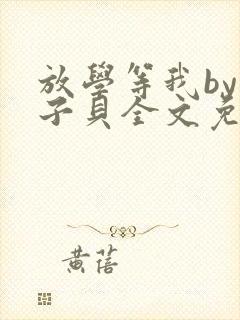 放學等我by
子貝全文免
黃蓓